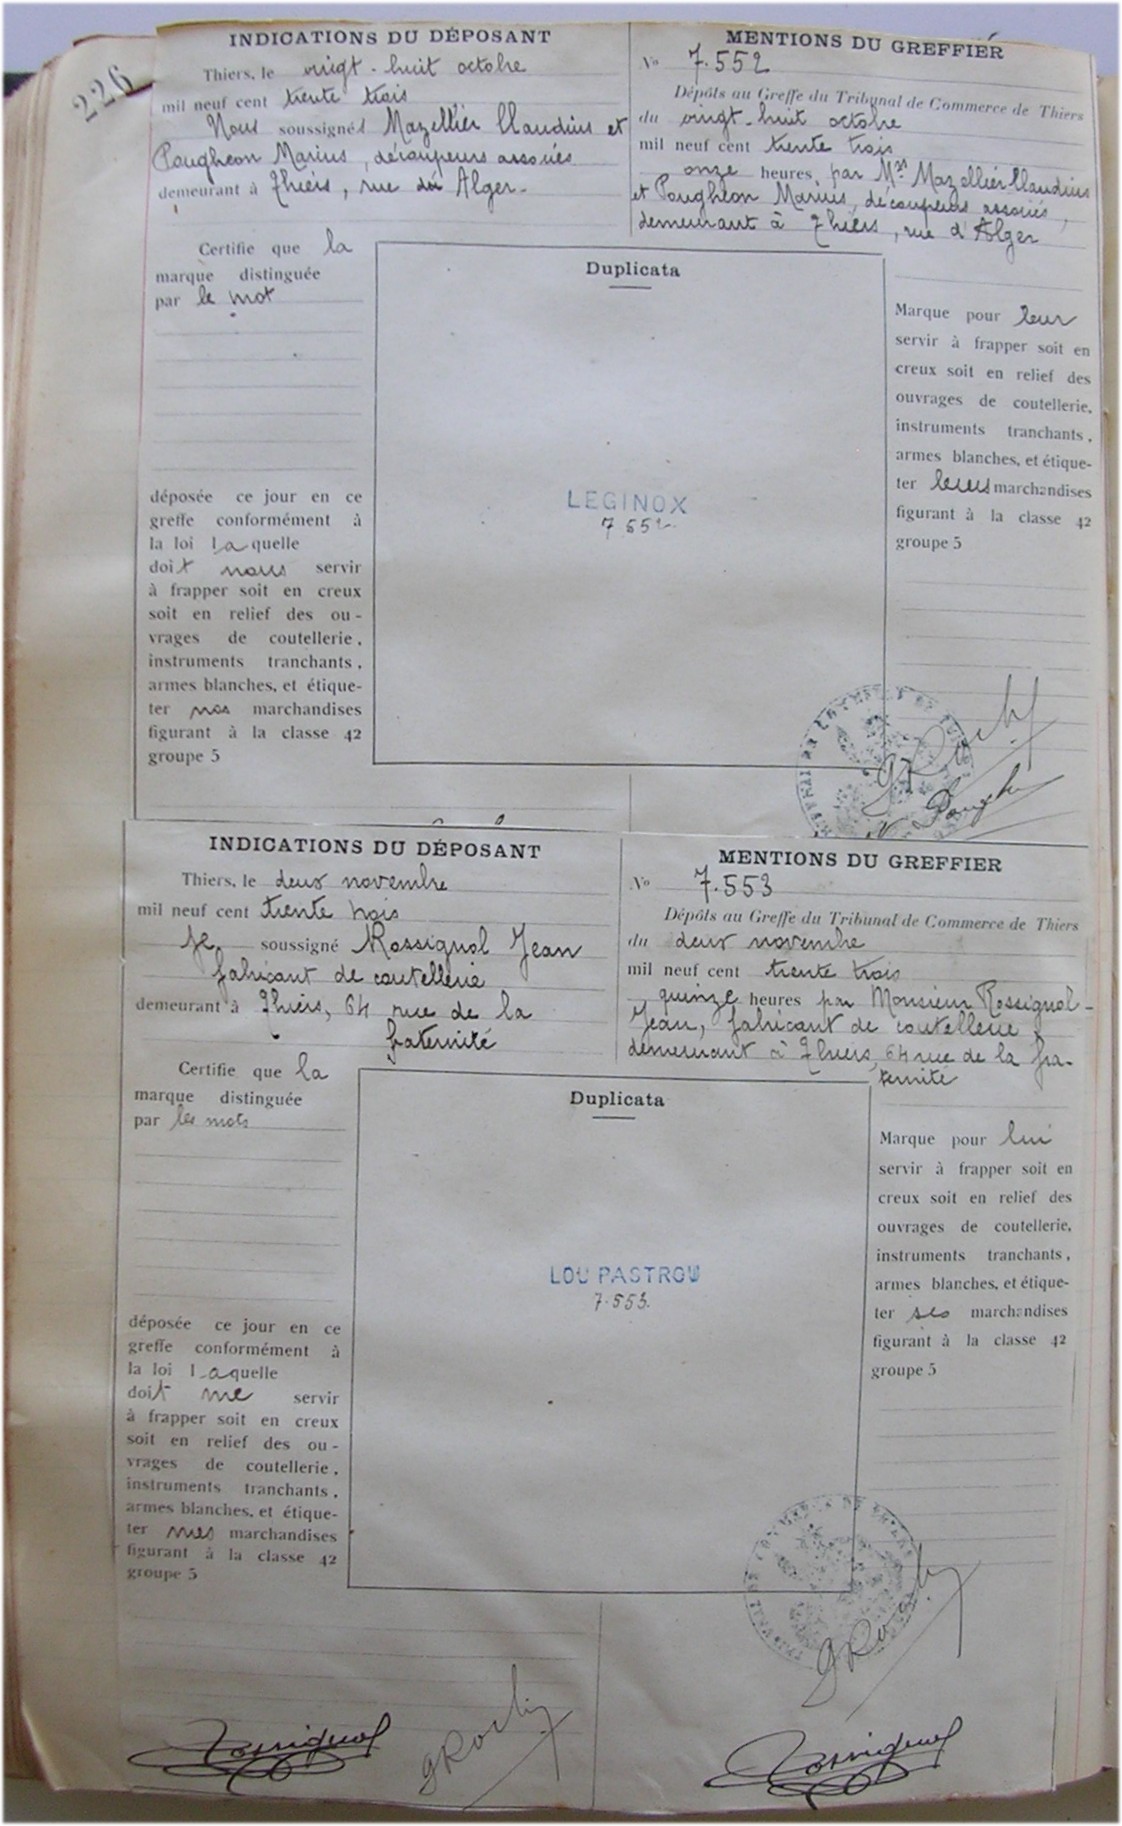 226
INDICATIONS DU DÉPOSANT
Thiers, le vingt-huit octobre
mil neuf cent trente trois
Nous soussignés Mazellier Claudius et
Paugheon Marius, découpeurs associés
demeurant à Thiers, rue d'Alger.
Certifie que la
marque distinguée
par le mot
déposée ce jour en ce
greffe conformément à
la loi laquelle
doit nous servir
à frapper soit en creux
soit en relief des ou-
vrages de coutellerie,
instruments tranchants,
armes blanches, et étique-
ter nos marchandises
figurant à la classe 42
groupe 5
Duplicata
LEGINOX
7552
MENTIONS DU GREFFIER
No 7.552
Dépôts au Greffe du Tribunal de Commerce de Thiers
du vingt-huit octobre
mil neuf cent trente trois
onze heures par Mrs Mazellier Claudius
et Paugheon Marius, découpeurs associés,
demeurant à Thiers, rue d'Alger
Marque pour leur
servir à frapper soit en
creux soit en relief des
ouvrages de coutellerie,
instruments tranchants,
armes blanches, et étique-
ter leurs marchandises
figurant à la classe 42
groupe 5
INDICATIONS DU DÉPOSANT
Thiers, le deux novembre
mil neuf cent trente trois
Je soussigné Rossignol Jean
fabricant de coutellerie
demeurant à Thiers, 64 rue de la
fraternité
Certifie que la
marque distinguée
par les mots
déposée ce jour en ce
greffe conformément à
la loi laquelle
doit me servir
à frapper soit en creux
soit en relief des ou-
vrages de coutellerie,
instruments tranchants,
armes blanches, et étique-
ter mes marchandises
figurant à la classe 42
groupe 5
Duplicata
LOU PASTROU
7.553.
MENTIONS DU GREFFIER
No 7.553
Dépôts au Greffe du Tribunal de Commerce de Thiers
du deux novembre
mil neuf cent trente trois
quinze heures par Monsieur Rossignol-
Jean, fabricant de coutellerie,
demeurant à Thiers, 64 rue de la fra-
ternité
Marque pour lui
servir à frapper soit en
creux soit en relief des
ouvrages de coutellerie,
instruments tranchants,
armes blanches, et étique-
ter ses marchandises
figurant à la classe 42
groupe 5
Rossignol
Rossignol